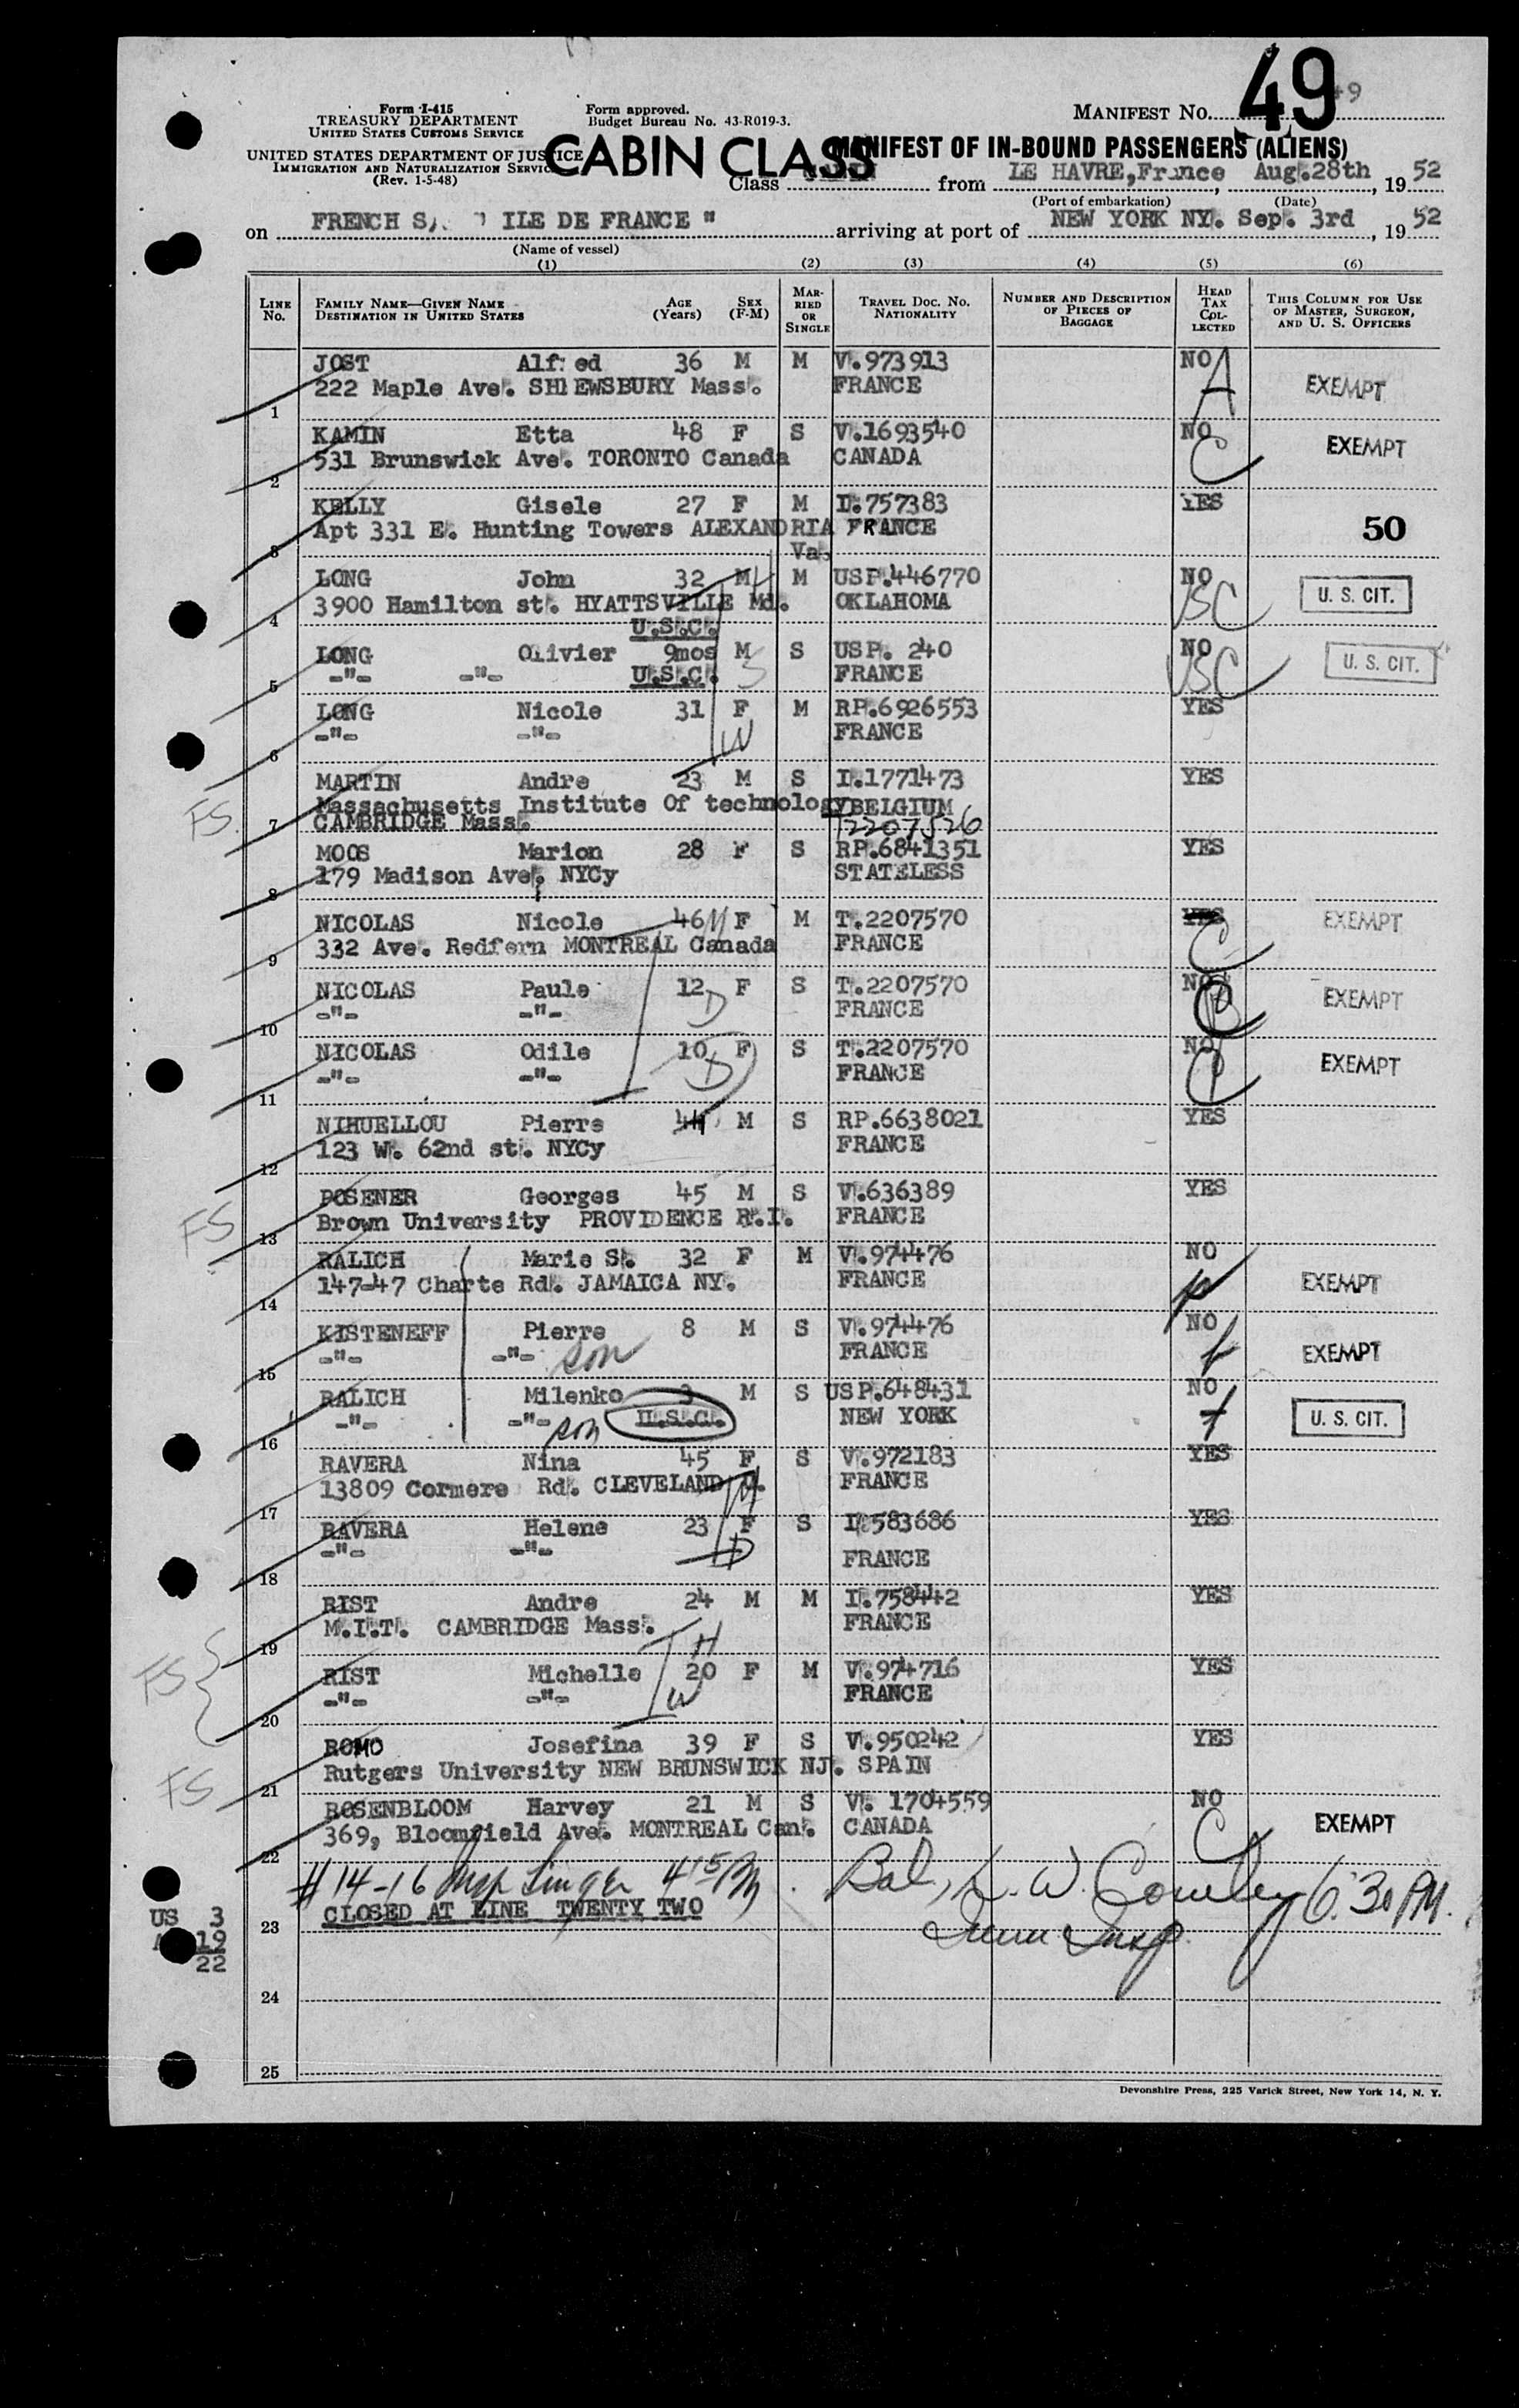 49
Form I-415
TREASURY DEPARTMENT
UNITED STATES CUSTOMS SERVICE
UNITED STATES DEPARTMENT OF JUSTICE
IMMIGRATION AND NATURALIZATION SERVICE
(Rev. 1-5-48)
Form approved.
Budget Bureau No. 43-R019-3.
MANIFEST No. 49
CABIN CLASS
MANIFEST OF IN-BOUND PASSENGERS (ALIENS)
Class from LE HAVRE, France, Aug. 28th, 19 52
(Port of embarkation) (Date)
on FRENCH S/. " ILE DE FRANCE " arriving at port of NEW YORK NY. Sep. 3rd, 19 52
(Name of vessel)
(1) (2) (3) (4) (5) (6)
LINE No. FAMILY NAME—GIVEN NAME DESTINATION IN UNITED STATES AGE (Years) SEX (F-M) MARRIED OR SINGLE TRAVEL DOC. NO. NATIONALITY NUMBER AND DESCRIPTION OF PIECES OF BAGGAGE HEAD TAX COLLECTED THIS COLUMN FOR USE OF MASTER, SURGEON, AND U. S. OFFICERS
JOST Alfred 36 M M V.973913 NO A EXEMPT
1 222 Maple Ave. SHREWSBURY Mass. FRANCE
KAMIN Etta 48 F S V.1693540 NO C EXEMPT
2 531 Brunswick Ave. TORONTO Canada CANADA
KELLY Gisele 27 F M I.757383 YES
3 Apt 331 E. Hunting Towers ALEXANDRIA Va. FRANCE 50
LONG John 32 M H M USP.446770 NO USC U. S. CIT.
4 3900 Hamilton st. HYATTSVILLE Md. OKLAHOMA
U.S.C.
LONG Olivier 9mos M S S USP. 240 NO USC U. S. CIT.
5 -"- -"- U.S.C. FRANCE
LONG Nicole 31 F W M RP.6926553 YES
6 -"- -"- FRANCE
MARTIN Andre 23 M S I.1771473 YES
FS. 7 Massachusetts Institute Of technology BELGIUM
CAMBRIDGE Mass. T2207526
MOOS Marion 28 F S RP.6841351 YES
8 179 Madison Ave. NYCy STATELESS
NICOLAS Nicole 46 M F M T.2207570 YES C EXEMPT
9 332 Ave. Redfern MONTREAL Canada FRANCE
NICOLAS Paule 12 D F S T.2207570 NO C EXEMPT
10 -"- -"- FRANCE
NICOLAS Odile 10 D F S T.2207570 NO C EXEMPT
11 -"- -"- FRANCE
NIHUELLOU Pierre 44 M S RP.6638021 YES
12 123 W. 62nd st. NYCy FRANCE
POSENER Georges 45 M S V.636389 YES
FS 13 Brown University PROVIDENCE R.I. FRANCE
RALICH Marie S. 32 F M V.974476 NO EXEMPT
14 147-47 Charte Rd. JAMAICA NY. FRANCE
KISTENEFF Pierre 8 M S V.974476 NO EXEMPT
15 -"- -"- son FRANCE
RALICH Milenko 3 M S USP.648431 NO U. S. CIT.
16 -"- -"- son U.S.C. NEW YORK
RAVERA Nina 45 F S V.972183 YES
17 13809 Cormere Rd. CLEVELAND O. M FRANCE
RAVERA Helene 23 F S I.583686 YES
18 -"- -"- D FRANCE
RIST Andre 24 M M I.758442 YES
FS 19 M.I.T. CAMBRIDGE Mass. H FRANCE
RIST Michelle 20 F M V.974716 YES
20 -"- -"- W FRANCE
ROMO Josefina 39 F S V.950242 YES
FS 21 Rutgers University NEW BRUNSWICK NJ. SPAIN
ROSENBLOOM Harvey 21 M S V. 1704559 NO C EXEMPT
22 369, Bloomfield Ave. MONTREAL Can. CANADA
#14-16 Insp Singer 4 15 PM. Bal, 6:30 PM.
CLOSED AT LINE TWENTY TWO
23 Imm Insp
US 3
19
22
24
25
Devonshire Press, 225 Varick Street, New York 14, N. Y.